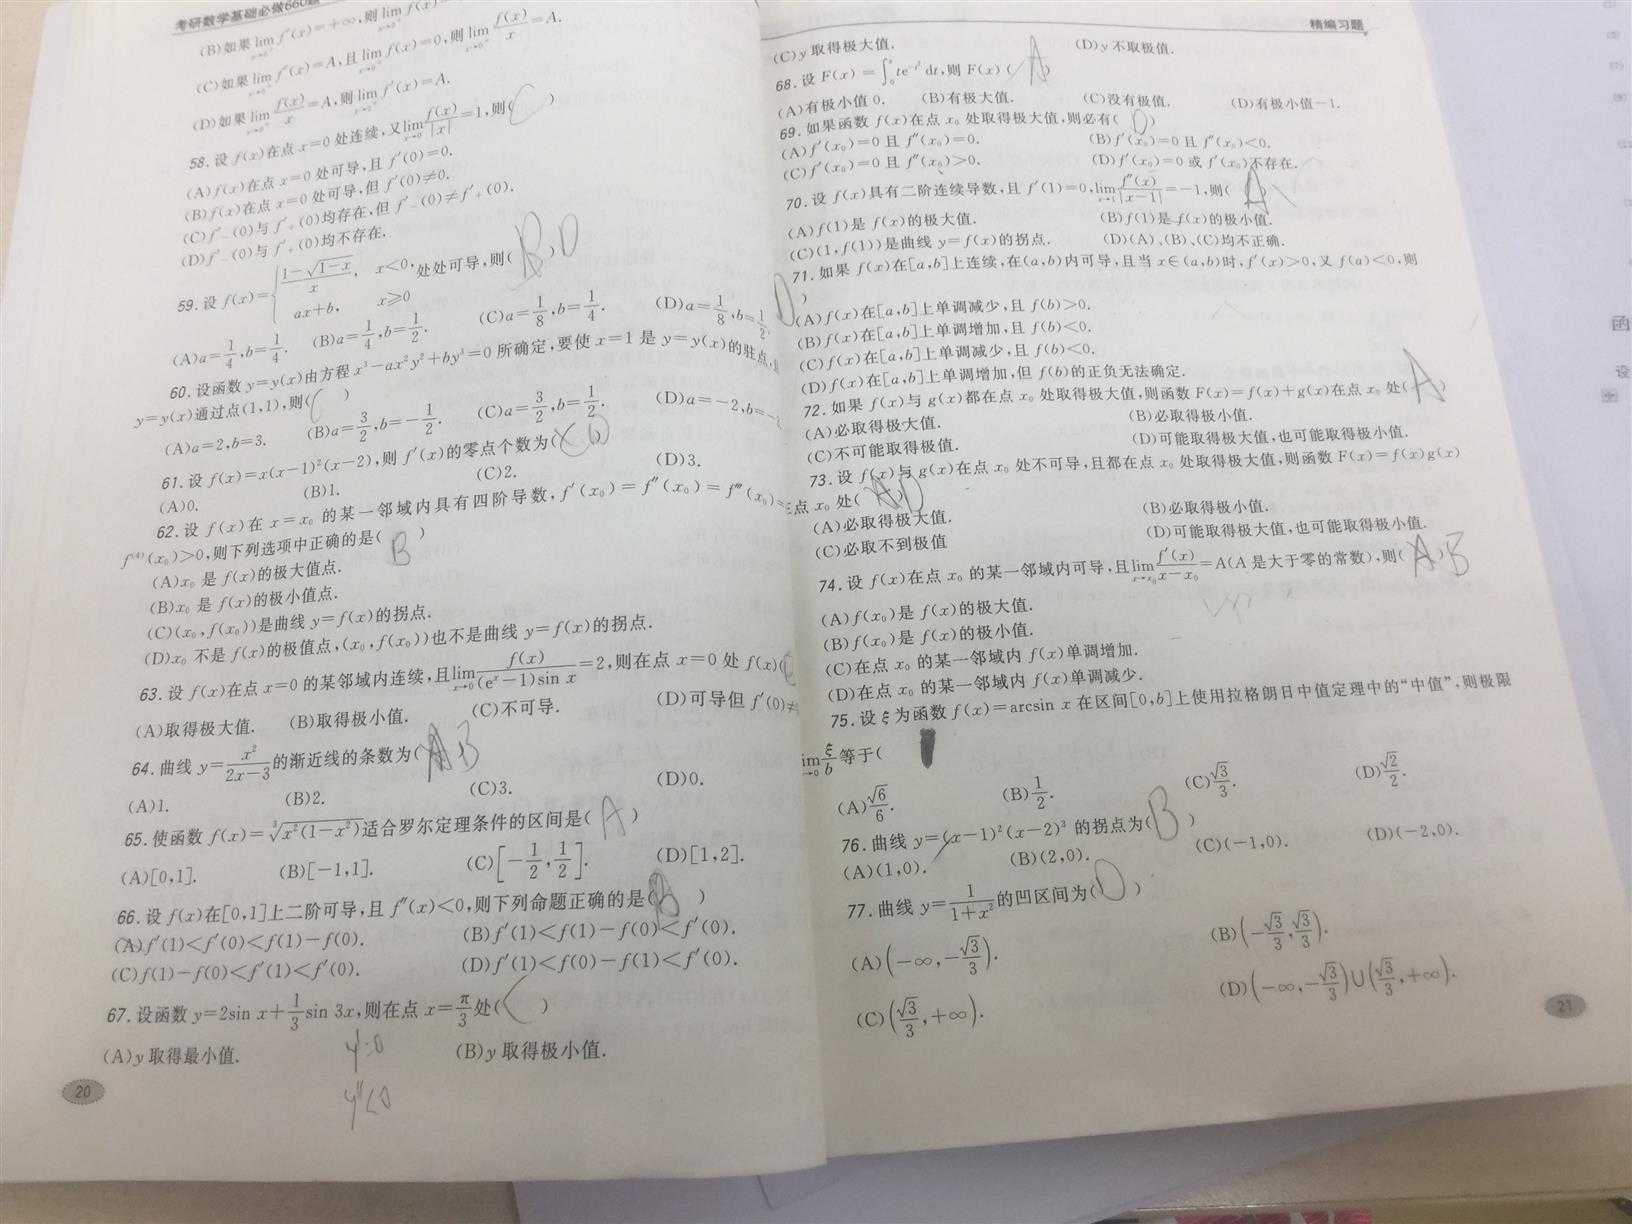 考研数学基础必做660题
(B)如果 lim f′(x)=+∞,则 lim f(x)
x→0⁺ x→0⁺
(C)如果 lim f′(x)=A,且 lim f(x)=0,则 lim f(x)/x=A.
(D)如果 lim f(x)/x=A,则 lim f′(x)=A.
58.设 f(x)在点 x=0 处连续,又 lim(x→0) f(x)/|x|=1,则( C )
(A)f(x)在点 x=0 处可导,且 f′(0)=0.
(B)f(x)在点 x=0 处可导,但 f′(0)≠0.
(C)f′₋(0)与 f′₊(0)均存在,但 f′₋(0)≠f′₊(0).
(D)f′₋(0)与 f′₊(0)均不存在.
59.设 f(x)={ (1-√(1-x))/x, x<0, ax+b, x≥0 处处可导,则( B ) D
(A)a=1/4,b=1/4. (B)a=1/4,b=1/2. (C)a=1/8,b=1/4. (D)a=1/8,b=1/2.
60.设函数 y=y(x)由方程 x³-ax²y²+by³=0 所确定,要使 x=1 是 y=y(x)的驻点,
y=y(x)通过点(1,1),则( C )
(A)a=2,b=3. (B)a=3/2,b=-1/2. (C)a=3/2,b=1/2. (D)a=-2,b=-
61.设 f(x)=x(x-1)²(x-2),则 f′(x)的零点个数为( D )
(A)0. (B)1. (C)2. (D)3.
62.设 f(x)在 x=x₀ 的某一邻域内具有四阶导数,f′(x₀)=f″(x₀)=f‴(x₀)=
f⁽⁴⁾(x₀)>0,则下列选项中正确的是( B )
(A)x₀ 是 f(x)的极大值点.
(B)x₀ 是 f(x)的极小值点.
(C)(x₀,f(x₀))是曲线 y=f(x)的拐点.
(D)x₀ 不是 f(x)的极值点,(x₀,f(x₀))也不是曲线 y=f(x)的拐点.
63.设 f(x)在点 x=0 的某邻域内连续,且 lim(x→0) f(x)/((eˣ-1)sin x)=2,则在点 x=0 处 f(x)(
(A)取得极大值. (B)取得极小值. (C)不可导. (D)可导但 f′(0)≠
64.曲线 y=x²/(2x-3)的渐近线的条数为( A B
(A)1. (B)2. (C)3. (D)0.
65.使函数 f(x)=∛(x²(1-x²))适合罗尔定理条件的区间是( A )
(A)[0,1]. (B)[-1,1]. (C)[-1/2,1/2]. (D)[1,2].
66.设 f(x)在[0,1]上二阶可导,且 f″(x)<0,则下列命题正确的是( B )
(A)f′(1)<f′(0)<f(1)-f(0). (B)f′(1)<f(1)-f(0)<f′(0).
(C)f(1)-f(0)<f′(1)<f′(0). (D)f′(1)<f(0)-f(1)<f′(0).
67.设函数 y=2sin x+1/3 sin 3x,则在点 x=π/3 处( C )
(A)y 取得最小值. (B)y 取得极小值.
y′=0
y″<0
20
精编习题
(C)y 取得极大值. (D)y 不取极值.
68.设 F(x)=∫₀ˣ te^(-t²)dt,则 F(x)( A )
(A)有极小值 0. (B)有极大值. (C)没有极值. (D)有极小值-1.
69.如果函数 f(x)在点 x₀ 处取得极大值,则必有( D )
(A)f′(x₀)=0 且 f″(x₀)=0. (B)f′(x₀)=0 且 f″(x₀)<0.
(C)f′(x₀)=0 且 f″(x₀)>0. (D)f′(x₀)=0 或 f′(x₀)不存在.
70.设 f(x)具有二阶连续导数,且 f′(1)=0,lim(x→1) f″(x)/|x-1|=-1,则( A
(A)f(1)是 f(x)的极大值. (B)f(1)是 f(x)的极小值.
(C)(1,f(1))是曲线 y=f(x)的拐点. (D)(A)、(B)、(C)均不正确.
71.如果 f(x)在[a,b]上连续,在(a,b)内可导,且当 x∈(a,b)时,f′(x)>0,又 f(a)<0,则
D )
(A)f(x)在[a,b]上单调减少,且 f(b)>0.
(B)f(x)在[a,b]上单调增加,且 f(b)<0.
(C)f(x)在[a,b]上单调减少,且 f(b)<0.
(D)f(x)在[a,b]上单调增加,但 f(b)的正负无法确定.
72.如果 f(x)与 g(x)都在点 x₀ 处取得极大值,则函数 F(x)=f(x)+g(x)在点 x₀ 处( A )
(A)必取得极大值. (B)必取得极小值.
(C)不可能取得极值. (D)可能取得极大值,也可能取得极小值.
73.设 f(x)与 g(x)在点 x₀ 处不可导,且都在点 x₀ 处取得极大值,则函数 F(x)=f(x)g(x)
在点 x₀ 处( A D
(A)必取得极大值. (B)必取得极小值.
(C)必取不到极值 (D)可能取得极大值,也可能取得极小值.
74.设 f(x)在点 x₀ 的某一邻域内可导,且 lim(x→x₀) f′(x)/(x-x₀)=A(A 是大于零的常数),则( A ) B
(A)f(x₀)是 f(x)的极大值.
(B)f(x₀)是 f(x)的极小值.
(C)在点 x₀ 的某一邻域内 f(x)单调增加.
(D)在点 x₀ 的某一邻域内 f(x)单调减少.
75.设 ξ 为函数 f(x)=arcsin x 在区间[0,b]上使用拉格朗日中值定理中的“中值”,则极限
lim(b→0) ξ/b 等于(
(A)√6/6. (B)1/2. (C)√3/3. (D)√2/2.
76.曲线 y=(x-1)²(x-2)³ 的拐点为( B )
(A)(1,0). (B)(2,0). (C)(-1,0). (D)(-2,0).
77.曲线 y=1/(1+x²)的凹区间为( D )
(A)(-∞,-√3/3). (B)(-√3/3,√3/3).
(C)(√3/3,+∞). (D)(-∞,-√3/3)∪(√3/3,+∞).
21
函
设